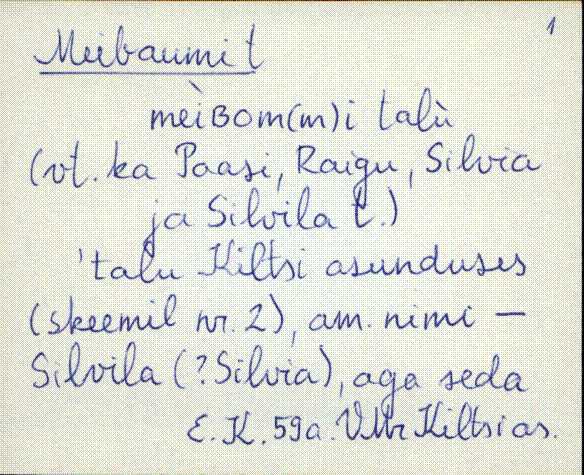 1
Meibaumi t
meìBom(m)i talù
(vt. ka Paasi, Raigu, Silvia
ja Silvila t.)
'talu Kiltsi asunduses
(skeemil nr. 2), am. nimi –
Silvila (? Silvia), aga seda
E. K. 59a. VMr Kiltsi as.